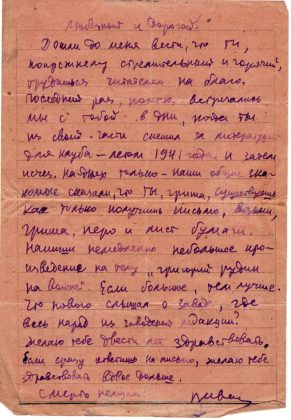 Любезный и Дорогой!
Дошли до меня вести, что ты,
по прежнему стремительный и горячий,
трудишься читателям на благо.
Последний раз, помню, встречались
мы с тобой в дни, когда ты
из своей части спешил за литературой
для клуба – летом 1941 года и затем
исчез. На днях только – наши общие зна-
комые сказали, что ты, Гриша, существуешь
Как только получишь письмо, возьми,
Гриша, перо и лист бумаги.
Напиши немедленно небольшое про-
изведение на тему „Григорий Рудин
на войне". Если большое, тем лучше.
Что нового слышал о заводе, где
весь народ из заводской редакции?
Желаю тебе двести лет здравствовать.
Если сразу ответишь на письмо, желаю тебе
здравствовать вдвое дольше.
Смерть немцам!